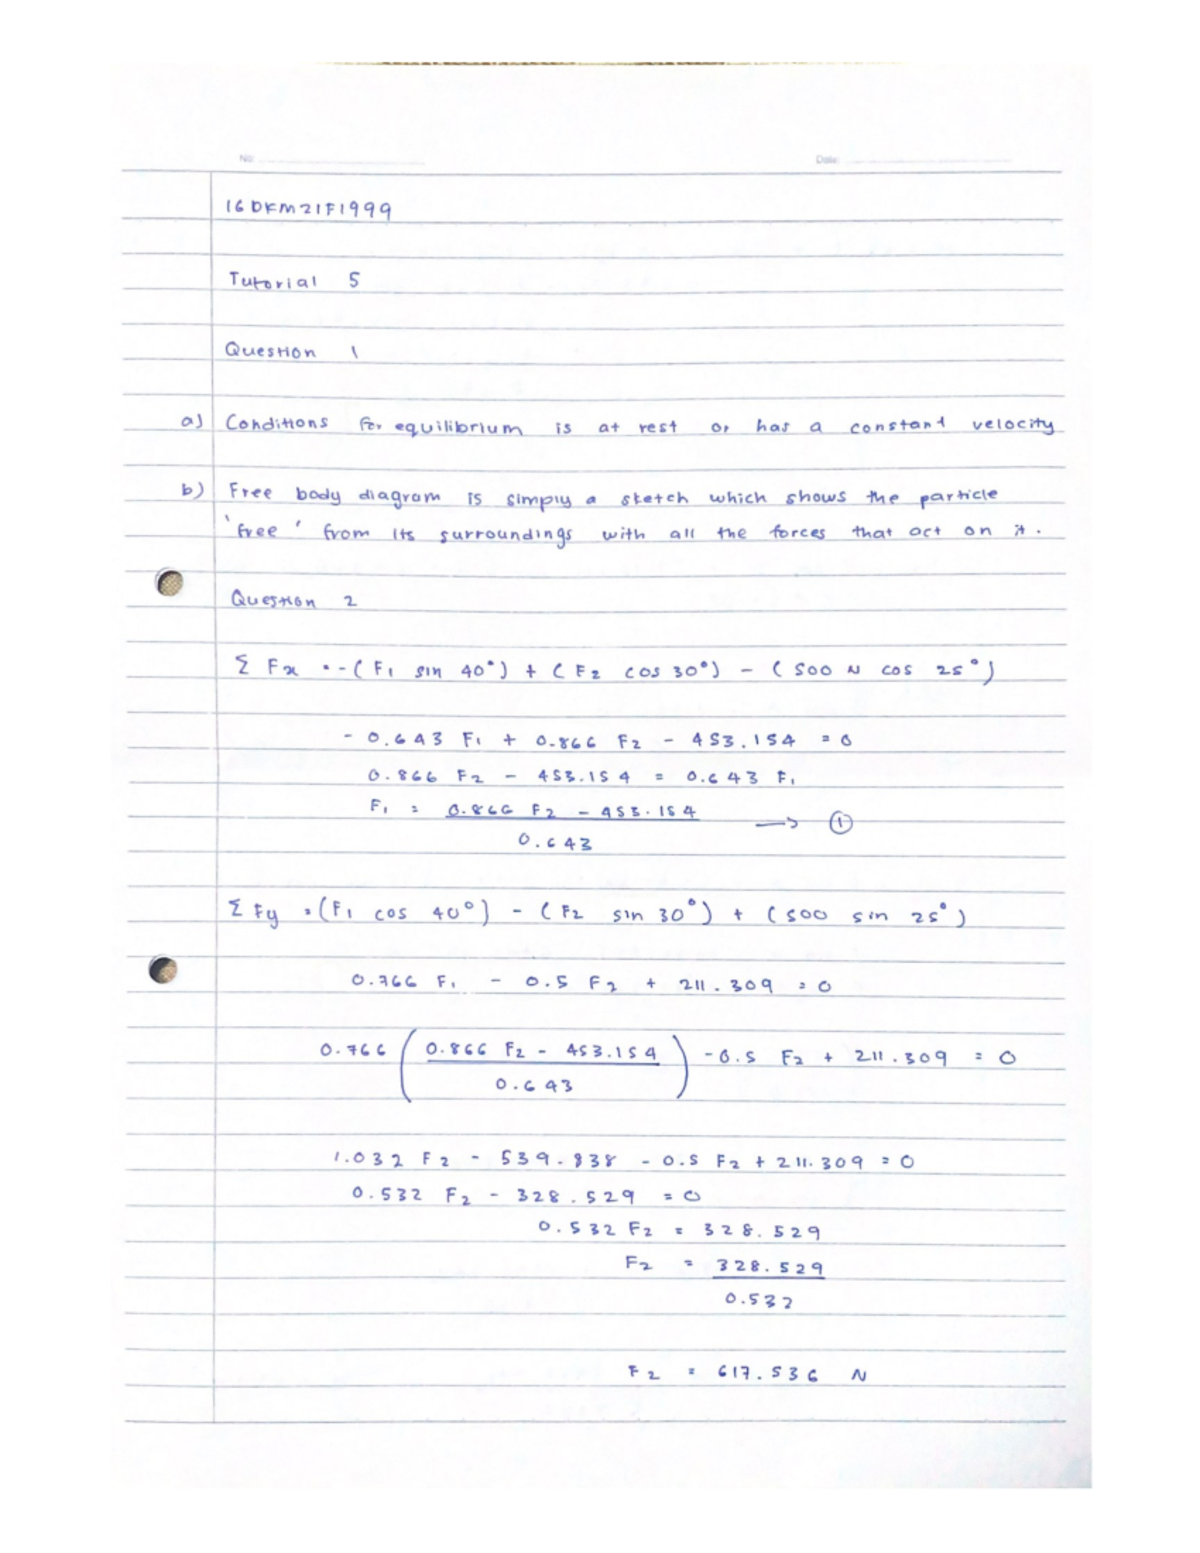 No:
Date:
16DKM21F1999
Tutorial 5
Question 1
a) Conditions for equilibrium is at rest or has a constant velocity
b) Free body diagram is simply a sketch which shows the particle
'free' from its surroundings with all the forces that act on it.
Question 2
Σ Fx = -(F₁ sin 40°) + (F₂ cos 30°) - (500 N cos 25°)
- 0.643 F₁ + 0.866 F₂ - 453.154 = 0
0.866 F₂ - 453.154 = 0.643 F₁
F₁ = 0.866 F₂ - 453.154 → ①
0.643
Σ Fy = (F₁ cos 40°) - (F₂ sin 30°) + (500 sin 25°)
0.766 F₁ - 0.5 F₂ + 211.309 = 0
0.766 ( 0.866 F₂ - 453.154 ) - 0.5 F₂ + 211.309 = 0
0.643
1.032 F₂ - 539.838 - 0.5 F₂ + 211.309 = 0
0.532 F₂ - 328.529 = 0
0.532 F₂ = 328.529
F₂ = 328.529
0.532
F₂ = 617.536 N